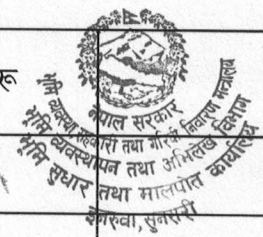 रू
नेपाल सरकार
भूमि व्यवस्था सहकारी तथा गरिबी निवारण मन्त्रालय
भूमि व्यवस्थापन तथा अभिलेख विभाग
भूमि सुधार तथा मालपोत कार्यालय
इनरुवा, सुनसरी